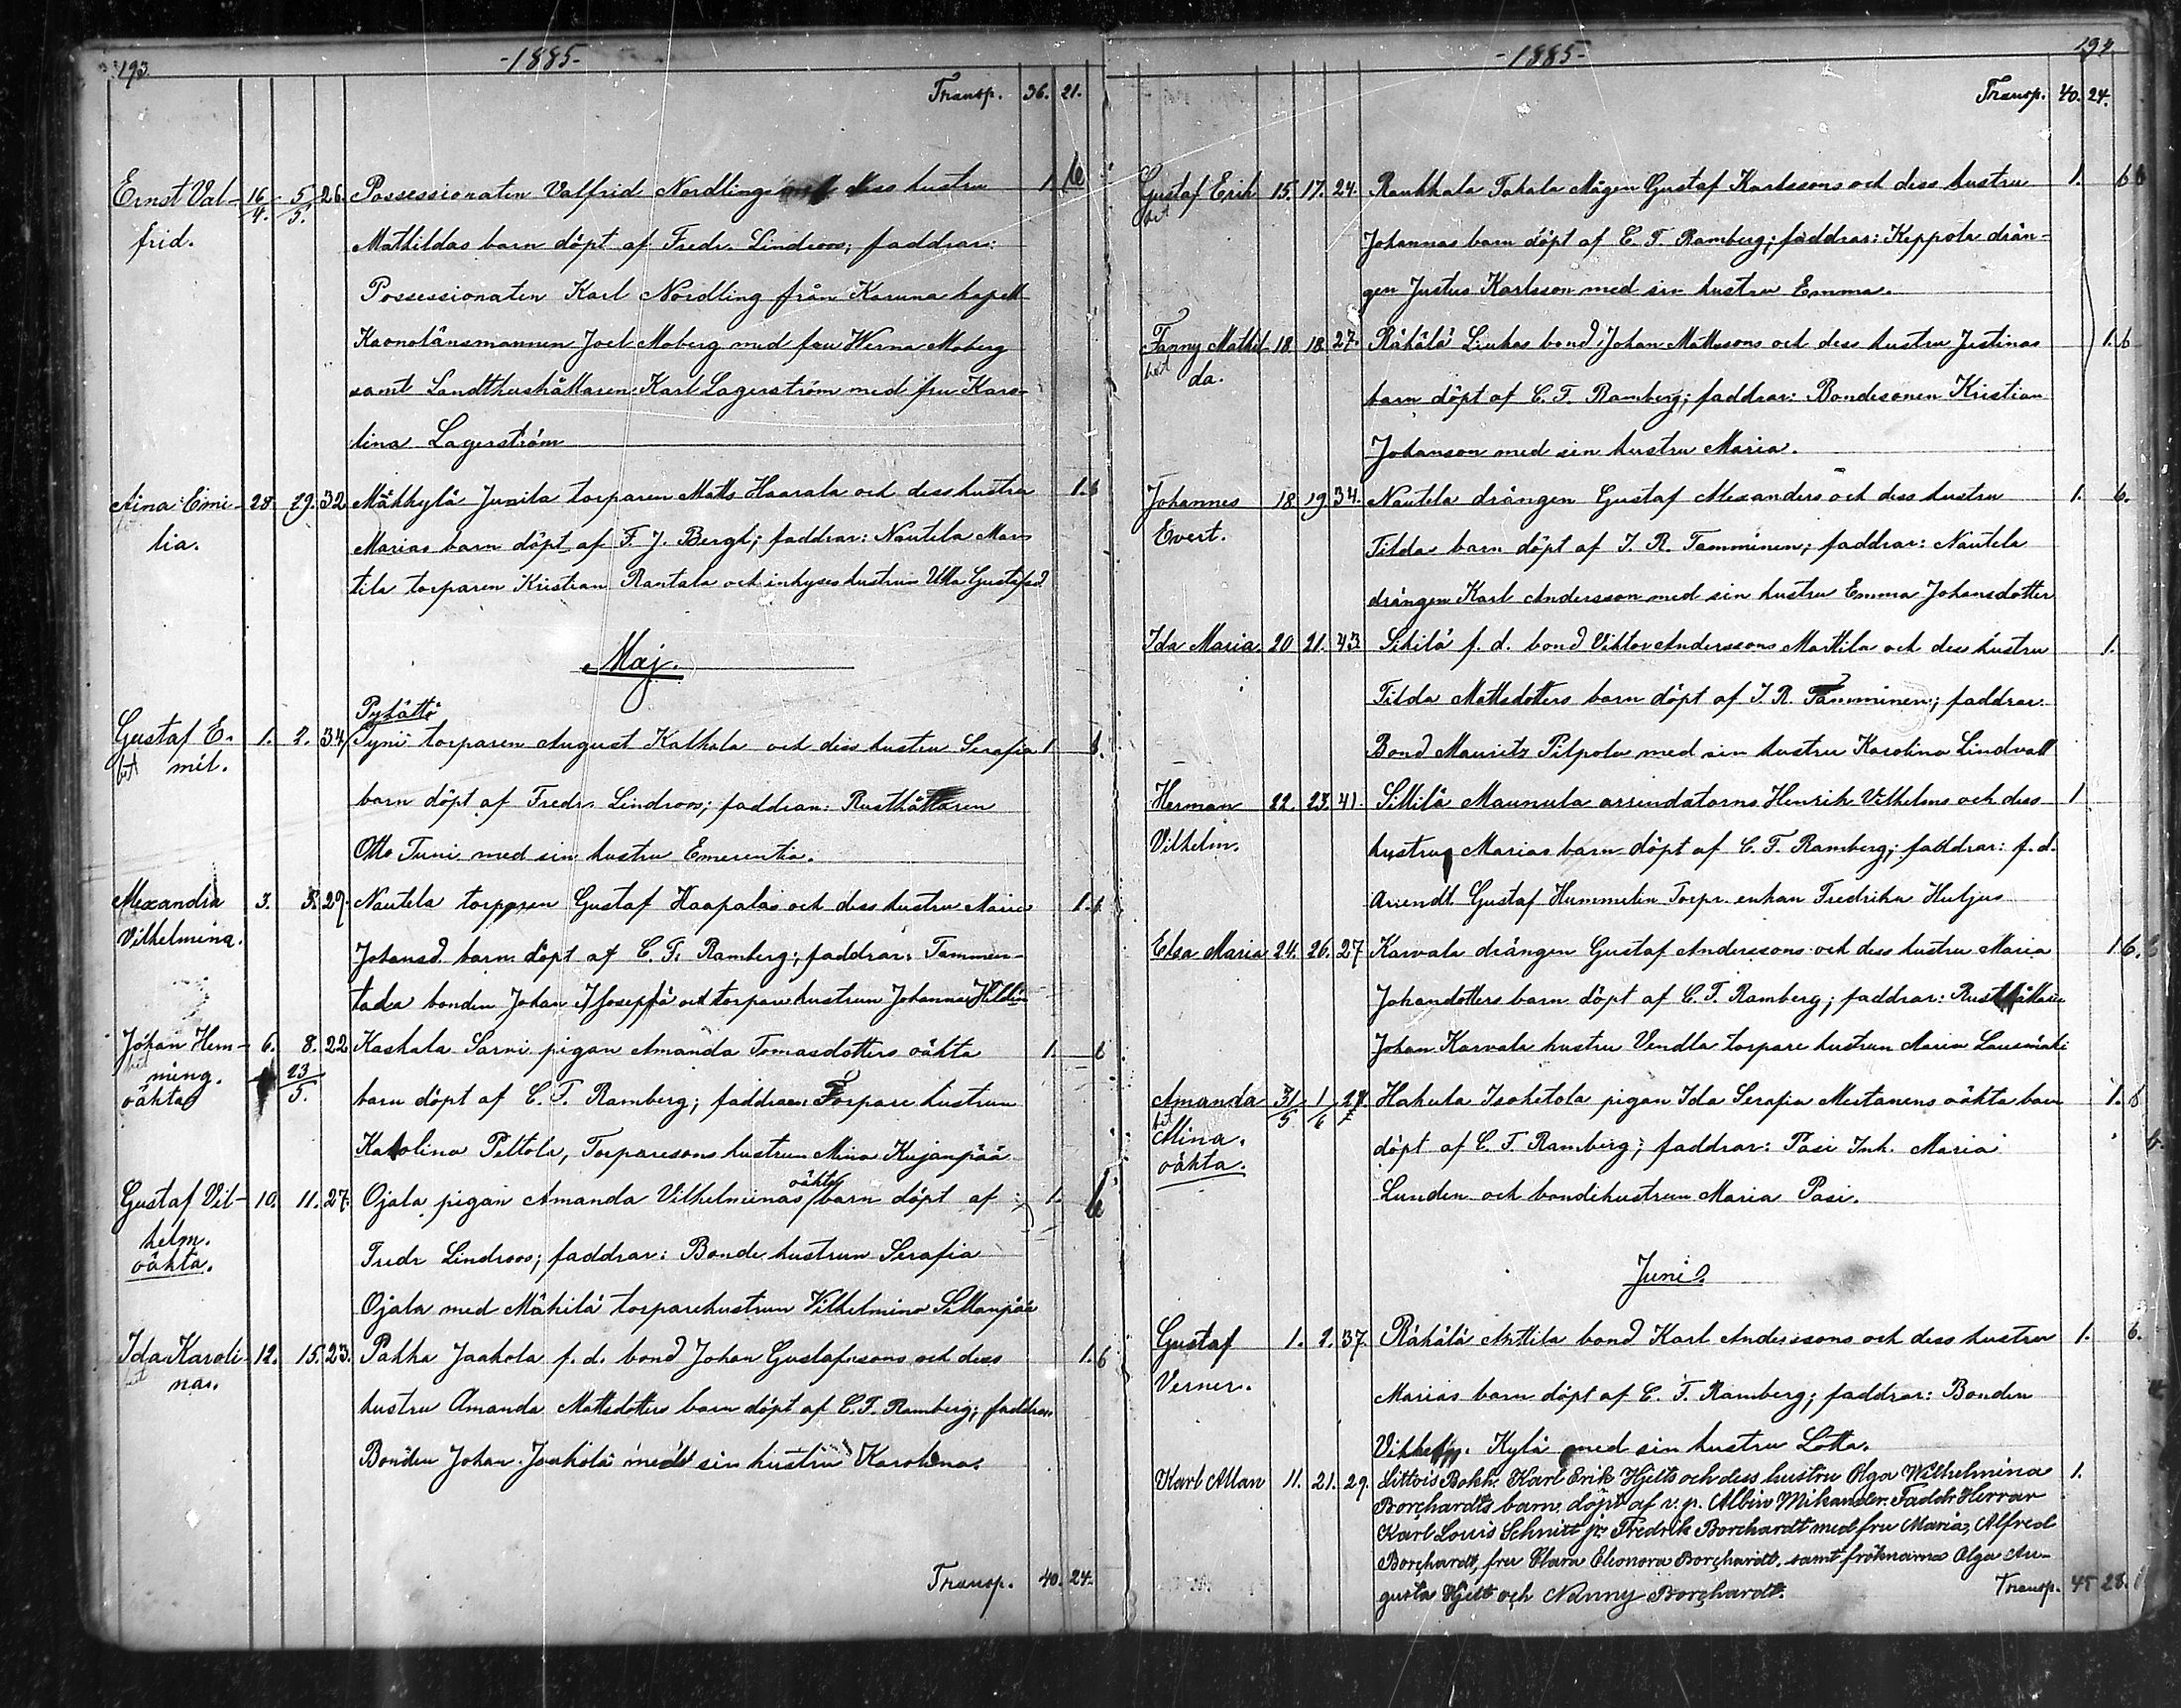 193
-1885-
Transp. 36. 21.
Ernst Val- 16/4. 5/5. 26. Possessionaten Valfrid Nordlings och dess hustru 1. 6
frid. Mathildas barn döpt af Fredr. Lindroos; faddrar:
Possessionaten Karl Nordling från Karuna kapell
Kronolänsmannen Joel Moberg med fru Werna Moberg
samt Landthushållaren Karl Lagerström med fru Karo-
lina Lagerström
Aina Emi- 28. 29. 32 Mäkkylä Junila torparen Matts Haarala och dess hustru 1. 6
lia. Marias barn döpt af F. J. Bergh; faddrar: Nautela Mar-
tila torparen Kristian Rantala och inhyses hustrun Ulla Gustafsd.
Maj.
Pyhättö
Gustaf E- 1. 2. 34 Tyni torparen August Kalkala och dess hustru Serafia 1. 6.
bet mil. barn döpt af Fredr. Lindroos; faddrar: Rusthållaren
Otto Tuni med sin hustru Emerentia.
Alexandra 3. 3. 29. Nautela torparen Gustaf Haapalas och dess hustru Maria 1. 6
Vilhelmina. Johansd. barn döpt af C. F. Ramberg; faddrar: Tammen-
taka bonden Johan Joseppä och torpare hustrun Johanna Heldin
Johan Hem- 6. 8. 22 Kaskala Sarvi pigan Amanda Tomasdotters oäkta 1. 6
bet ming. 23/5. barn döpt af C. F. Ramberg; faddrar: Torpare hustrun
oäkta Karolina Peltola, Torparesons hustrun Mina Kujanpää
Gustaf Vil- 10. 11. 27. Ojala pigan Amanda Vilhelminas oäkta barn döpt af 1. 6
helm. Fredr Lindroos; faddrar: Bonde hustrun Serafia
oäkta. Ojala med Mäkilä torparehustrun Vilhelmina Sillanpää
Ida Karoli- 12. 15. 23. Pahka Jaakola f. d. bond Johan Gustafssons och dess 1. 6
bet na. hustru Amanda Mattsdotters barn döpt af C. F. Ramberg; faddrar
Bonden Johan Jaakola med sin hustru Karolina.
Transp. 40. 24.
194
-1885-
Transp. 40. 24.
Gustaf Erik 15. 17. 24. Raukkala Tahala Mågen Gustaf Karlssons och dess hustru 1. 6
bet Johannas barn döpt af C. F. Ramberg; faddrar: Keppola drän-
gen Justus Karlsson med sin hustru Emma.
Fanny Mathil- 18. 18. 27. Rähälä Liukas bond Johan Mattssons och dess hustru Justinas 1. 6
bet da. barn döpt af C. F. Ramberg; faddrar: Bondesonen Kristian
Johanson med sin hustru Maria.
Johannes 18. 19. 34. Nautela drängen Gustaf Alexanders och dess hustru 1. 6.
Evert. Tildas barn döpt af J. R. Tamminen; faddrar: Nautela
drängen Karl Andersson med sin hustru Emma Johansdotter
Ida Maria 20 21. 43 Sikilä f. d. bond Viktor Anderssons Marttila och dess hustru 1.
Tilda Mattsdotters barn döpt af J. R. Tamminen; faddrar:
Bond Maurits Pilpola med sin hustru Karolina Lindvall
Herman 22. 23. 41. Sillilä Maunula arrendatorns Henrik Vilhelms och dess 1
Vilhelm. hustrus Marias barn döpt af C. F. Ramberg; faddrar: f. d.
Arrendt. Gustaf Hummelin Torpr. enkan Fredrika Huljus
Elsa Maria 24. 26. 27 Karvala drängen Gustaf Anderssons och dess hustru Maria 1. 6.
Johandotters barn döpt af C. F. Ramberg; faddrar: Rusthållare
Johan Karvala hustru Vendla torpare hustrun Maria Lausmäki
Amanda 31/5 1/6 27. Hakula Isohetola pigan Ida Serafia Mertanens oäkta barn 1. 6
bet Mina. döpt af C. F. Ramberg; faddrar: Pasi Inh. Maria
oäkta. Lunden och bondehustrun Maria Pasi.
Juni.
Gustaf 1. 2. 37. Rähälä Anttila bond Karl Anderssons och dess hustru 1. 6.
Verner. Marias barn döpt af C. F. Ramberg; faddrar: Bonden
Vilhelm. Kylä med sin hustru Lotta.
Karl Allan 11. 21. 29. Littois Bokh. Karl Erik Hjelts och dess hustru Olga Wilhelmina 1.
Borchardts barn döpt af v. p. Albin Mikander. Faddr. Herrar
Karl Louis Schnitt jr. Fredrik Borchardt med fru Maria, Alfred
Borchardt, fru Clara Eleonora Borchardt, samt fröknarna Olga Au-
gusta Hjelt och Nanny Borchardt.
Transp. 45 28.